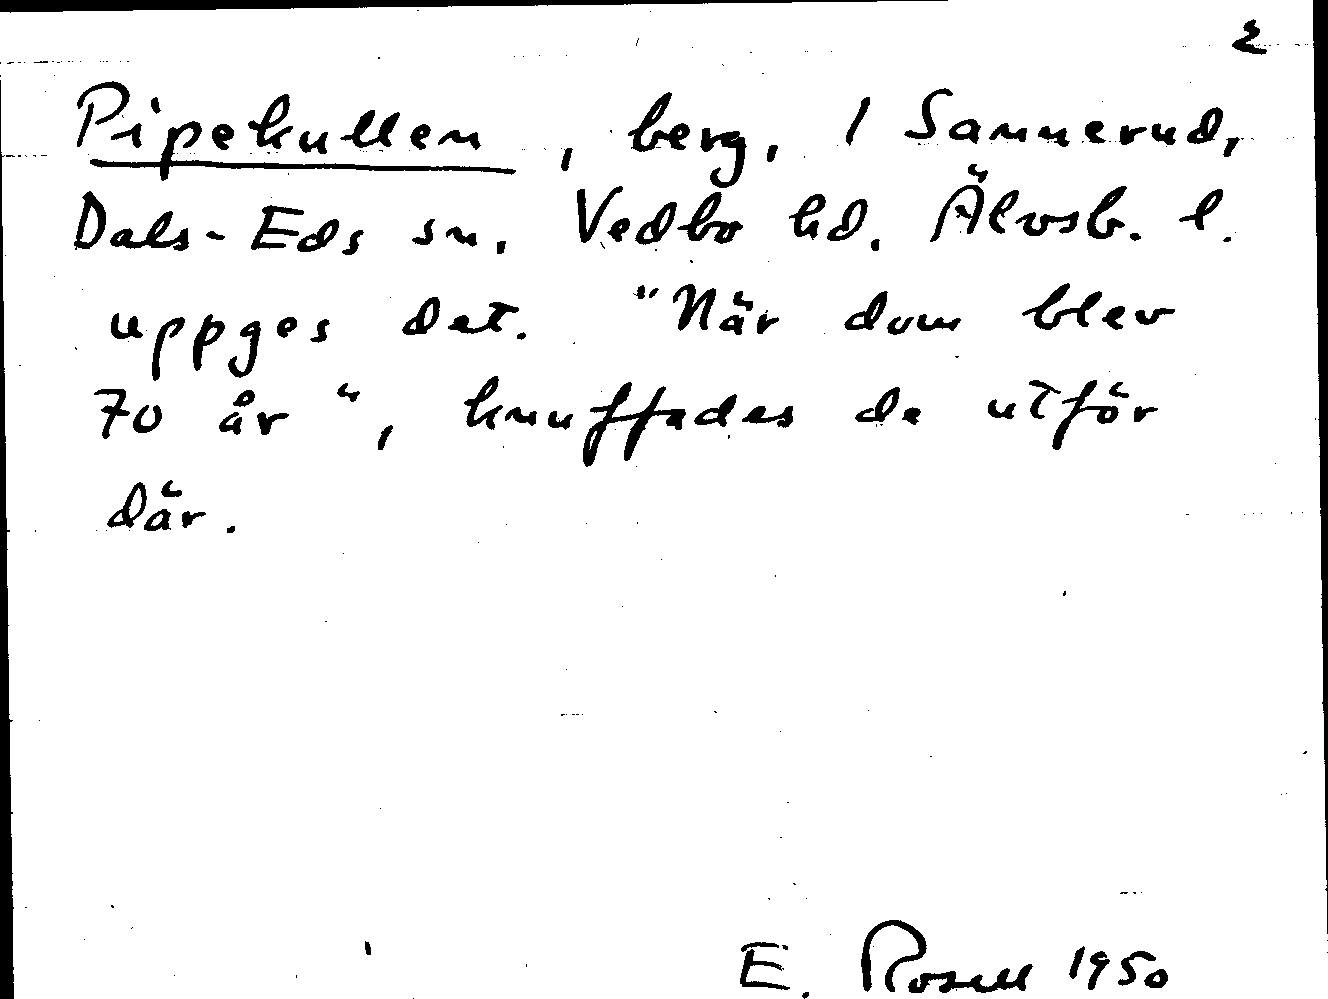 2
Pipekullen, berg. I Sannerud,
Dals-Eds sn. Vedbo hd. Älvsb. l.
uppges det. "När dom blev
70 år", knuffades de utför
där.
E. Rosell 1950